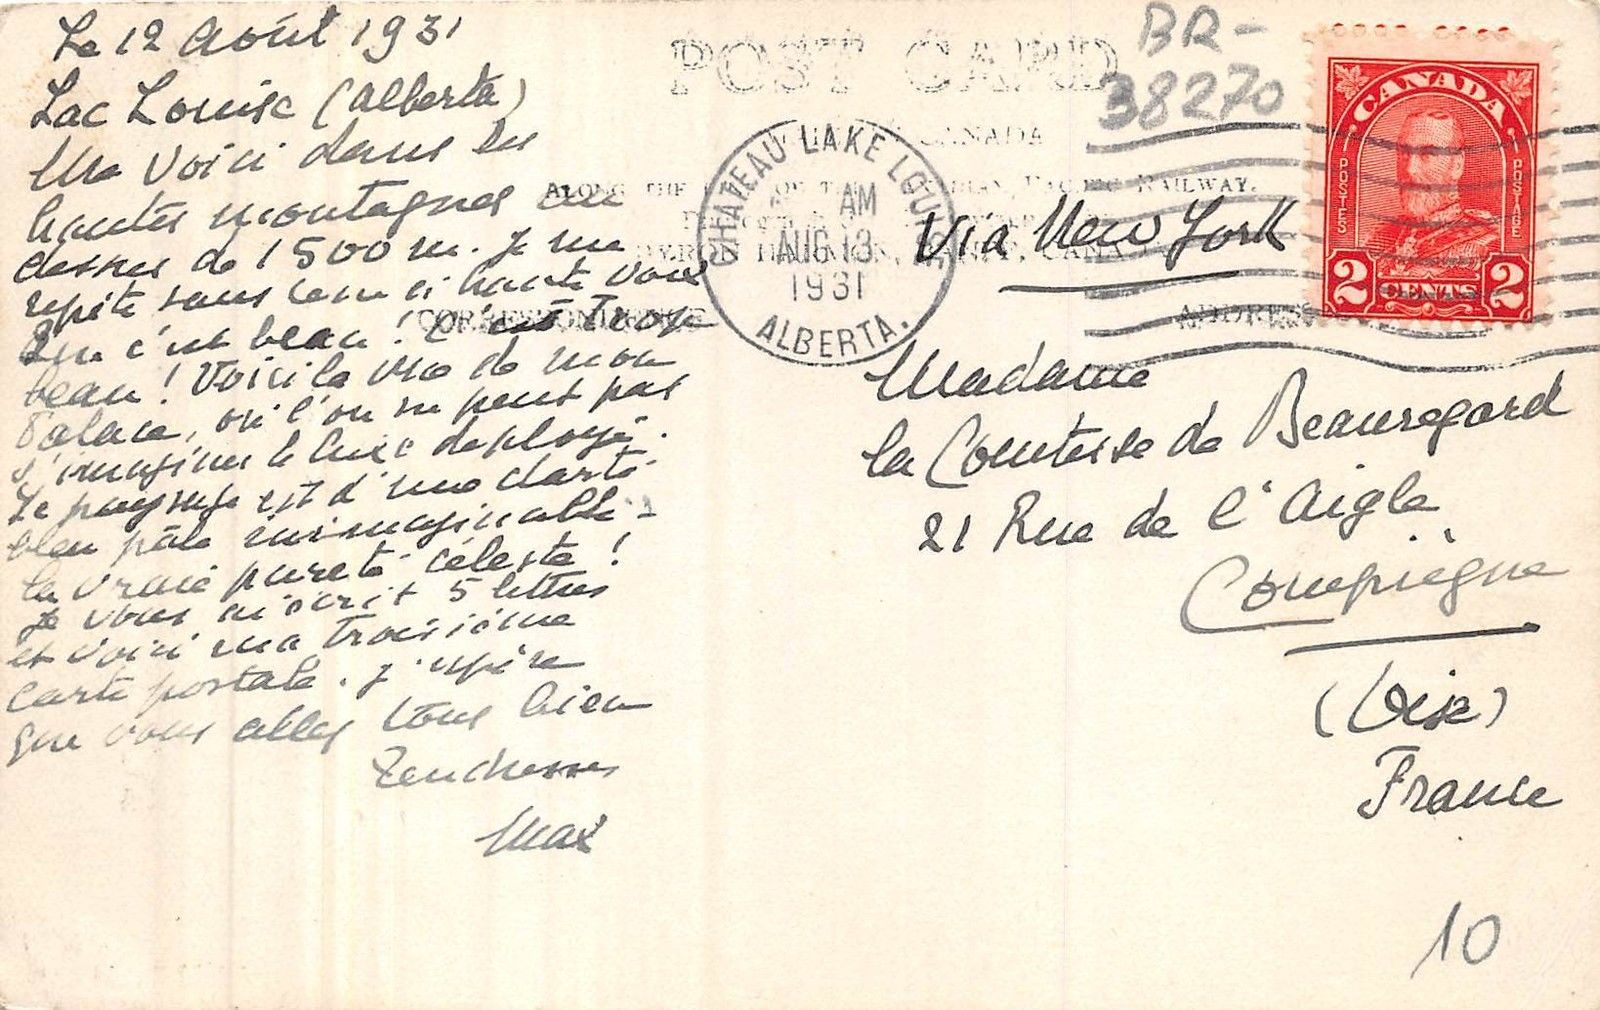 Le 12 Août 1931
Lac Louise (Alberta)
Me voici dans les
hautes montagnes au
dessus de 1500 m. Je me
répète sans cesse à haute voix
Que c'est beau ! C'est trop
beau ! Voici la vue de mon
Palace, où l'on ne peut pas
s'imaginer le luxe déployé.
Le paysage est d'une clarté
bleu pâle inimaginable -
la vraie pureté céleste !
Je vous ai écrit 5 lettres
et voici ma troisième
carte postale. J'espère
que vous allez tous bien
Tendresses
Max
POST CARD
BR-
38270
CANADA
ALONG THE CANADIAN PACIFIC RAILWAY.
BYRON HARMON, BANFF, CANADA
CORRESPONDENCE
ADDRESS
CHATEAU LAKE LOUISE
AM
AUG 13
1931
ALBERTA.
Via New York
CANADA
POSTES
POSTAGE
2 CENTS 2
Madame
la Comtesse de Beauregard
21 Rue de l'Aigle
Compiègne
(Oise)
France
10